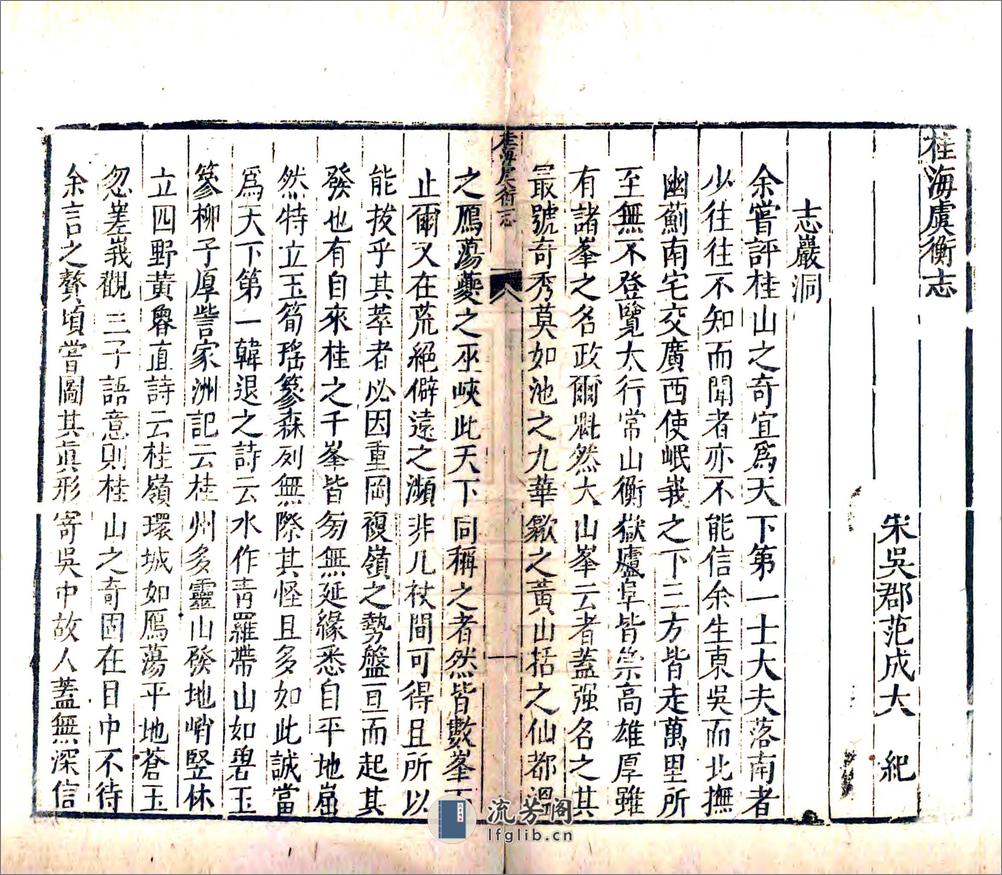 桂海虞衡志
宋吳郡范成大　紀
志巖洞
余嘗評桂山之奇宜爲天下第一士大夫落南者
少往往不知而聞者亦不能信余生東吳而北撫
幽薊南宅交廣西使岷峩之下三方皆走萬里所
至無不登覽太行常山衡嶽廬阜皆崇高雄厚雖
有諸峯之名政爾魁然大山峯云者蓋強名之其
最號奇秀莫如池之九華歙之黃山括之仙都溫
之鴈蕩夔之巫峽此天下同稱之者然皆數峯
止爾又在荒絕僻遠之瀕非几杖間可得且所以
能拔乎其萃者必因重岡複嶺之勢盤亘而起其
發也有自來桂之千峯皆旁無延緣悉自平地崛
然特立玉筍瑤篸森列無際其怪且多如此誠當
爲天下第一韓退之詩云水作青羅帶山如碧玉
篸柳子厚訾家洲記云桂州多靈山發地峭竪林
立四野黃魯直詩云桂嶺環城如鴈蕩平地蒼玉
忽嵳峩觀三子語意則桂山之奇固在目中不待
余言之贅頃嘗圖其眞形寄吳中故人蓋無深信
桂海虞衡志
一
流芳閣
lfglib.cn